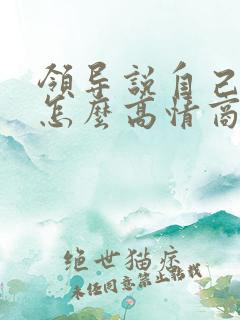 領导説自己
怎麽高情商
绝世猫症
未经同意禁止转载